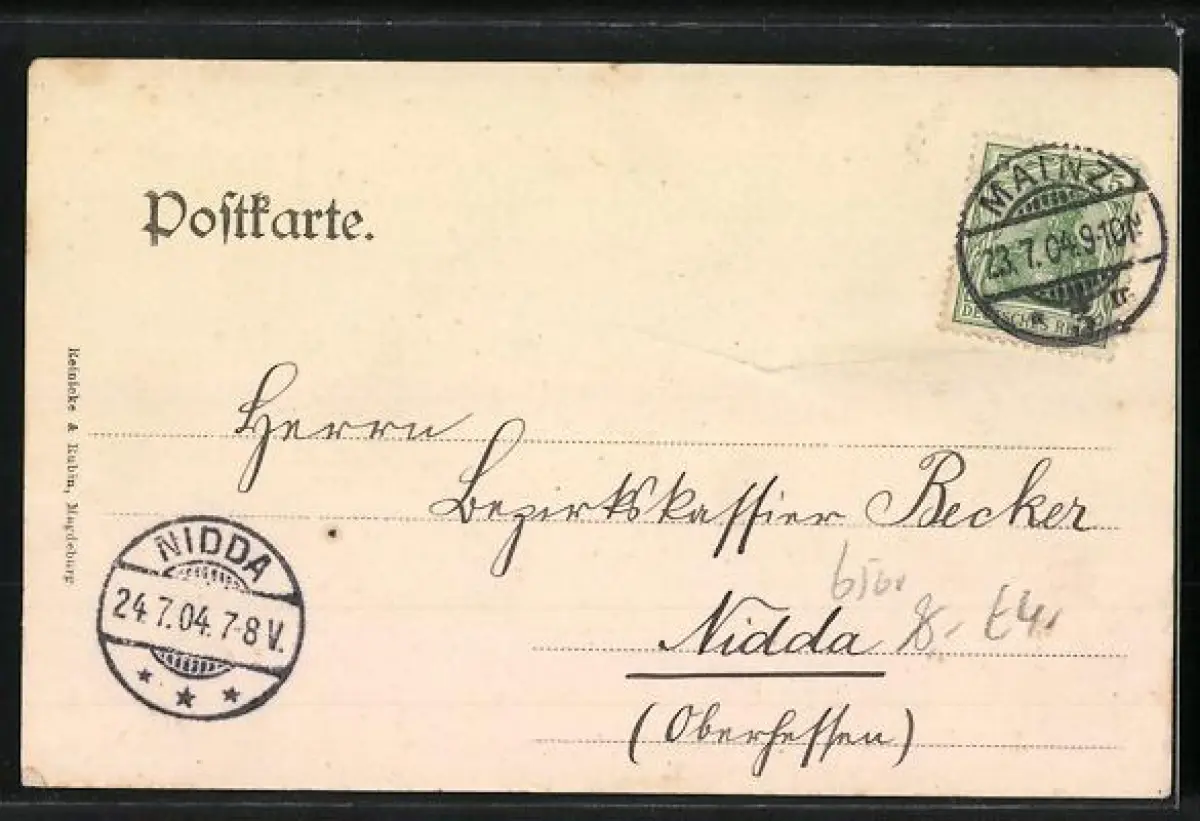 Postkarte.
MAINZ
23.7.04.9-10N.
DEUTSCHES REICH
Reinicke & Rubin, Magdeburg
Herrn
Bezirkskassier Becker
Nidda
(Oberhessen)
NIDDA
24.7.04.7-8V.